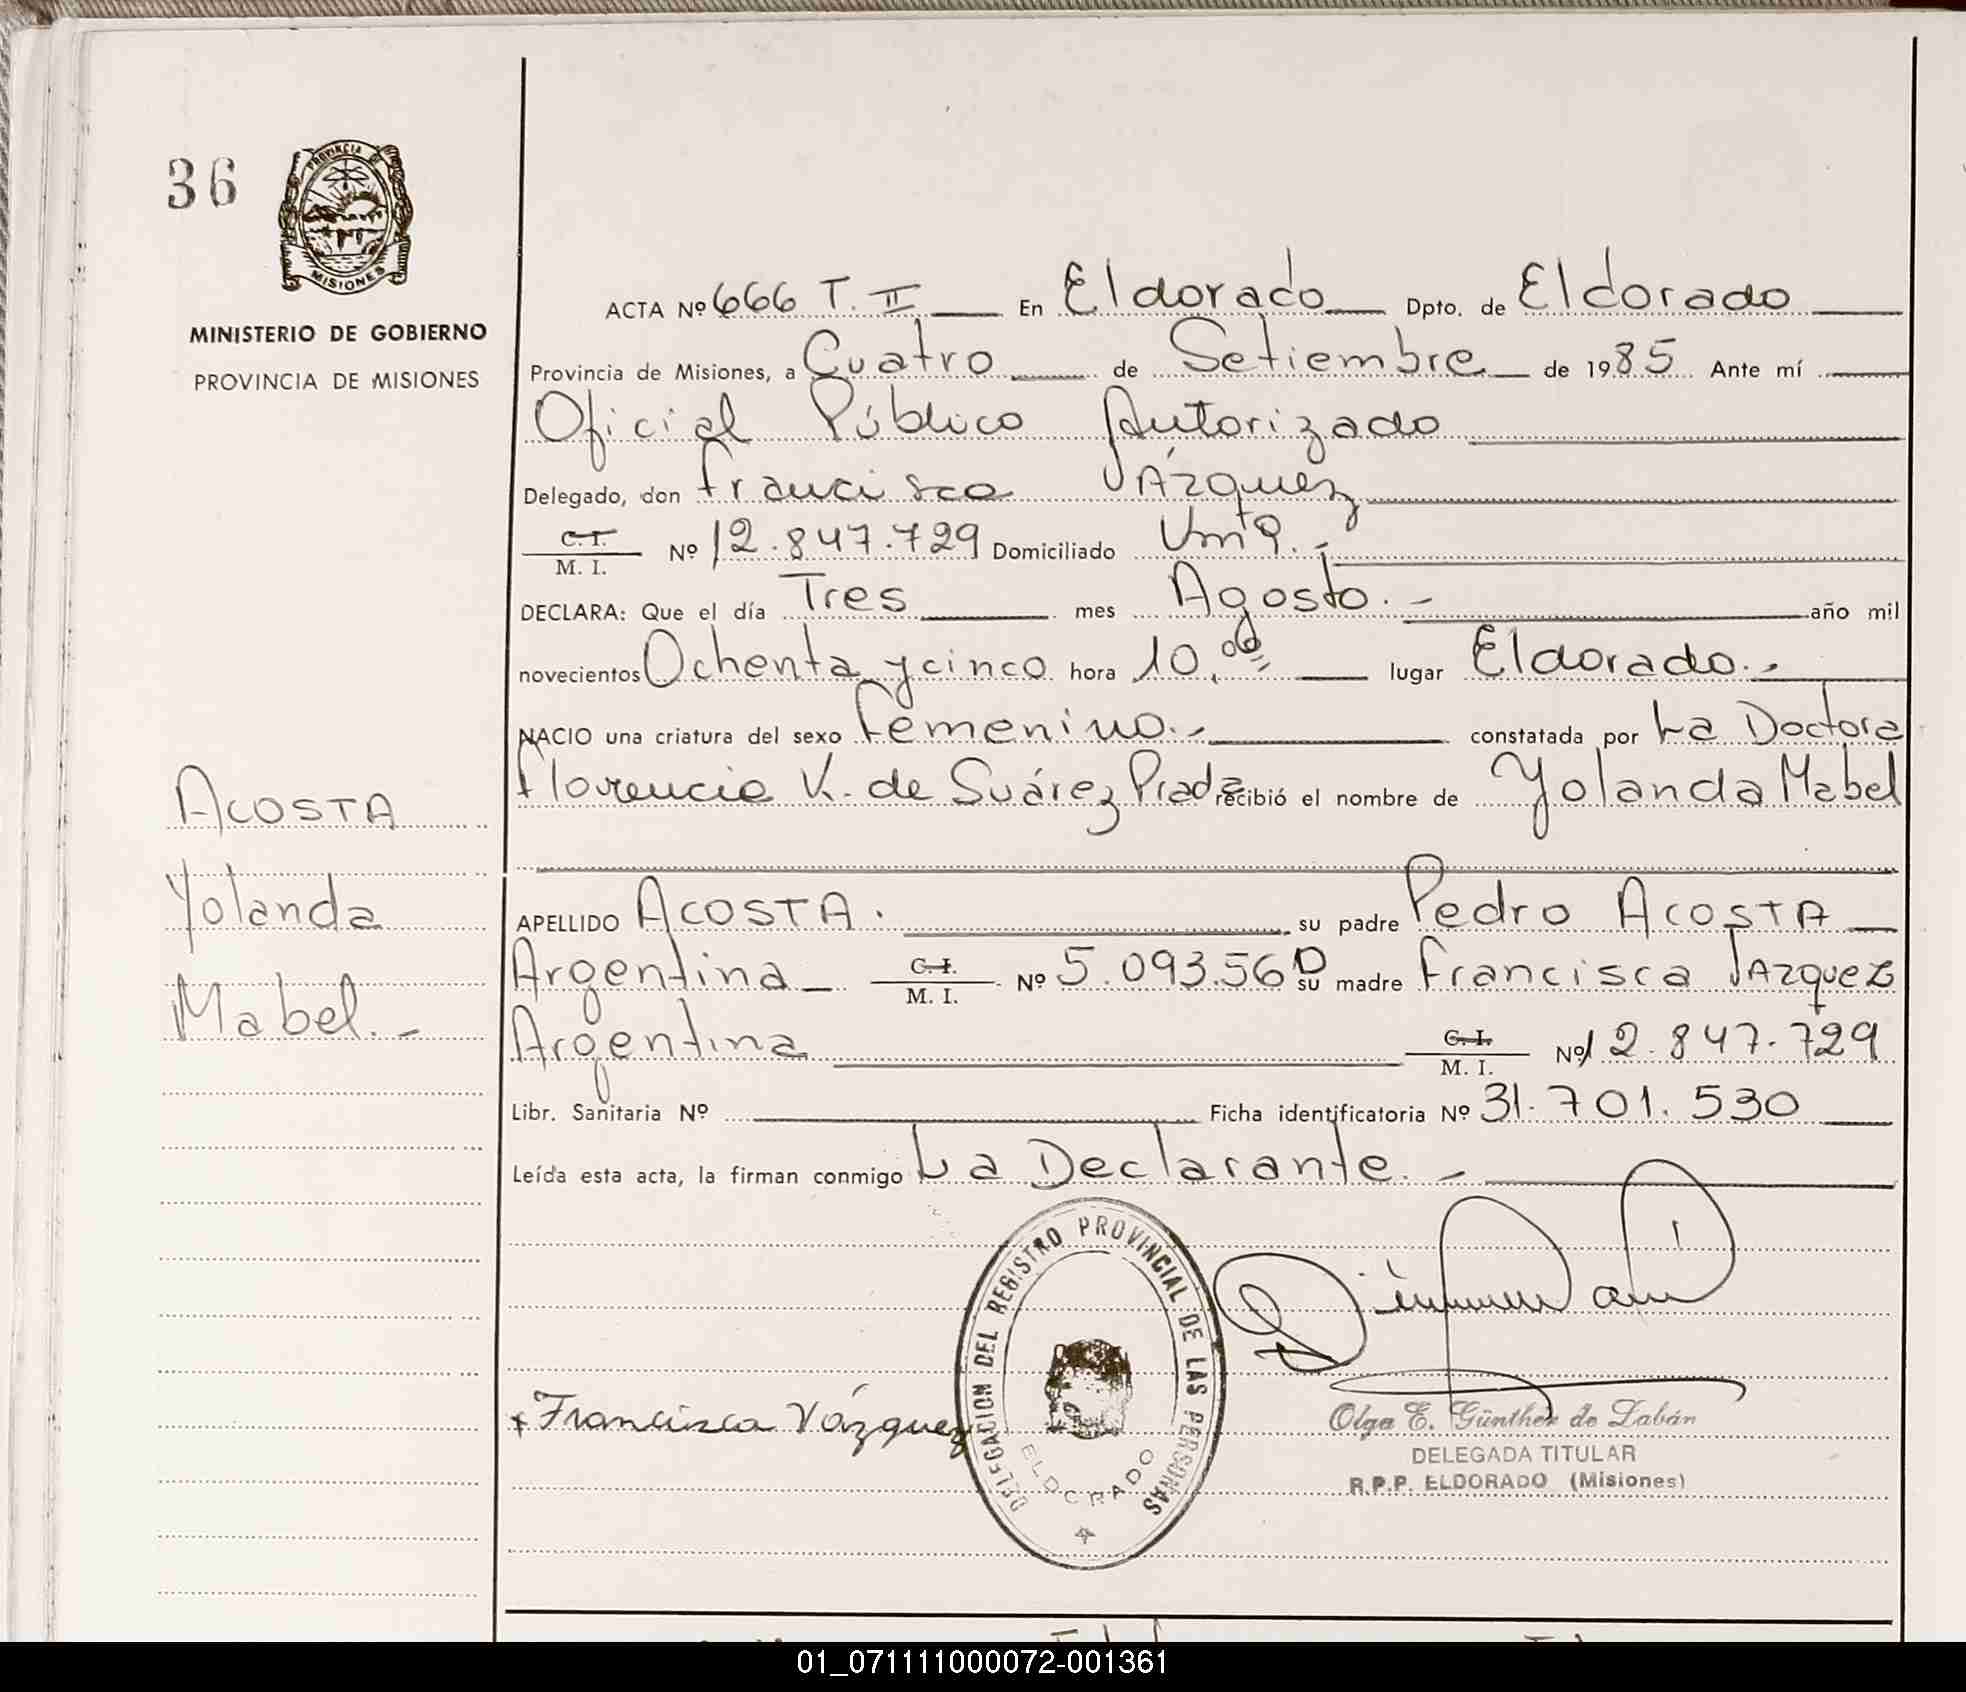 36
PROVINCIA DE
MISIONES
MINISTERIO DE GOBIERNO
PROVINCIA DE MISIONES
ACTA Nº 666 T. II En Eldorado Dpto. de Eldorado
Provincia de Misiones, a Cuatro de Setiembre de 1985 Ante mí
Oficial Público Autorizado
Delegado, don Francisca Vázquez
C.I. M. I. Nº 12.847.729 Domiciliado
DECLARA: Que el día Tres mes Agosto.- año mil
novecientos Ochenta y cinco hora 10. lugar Eldorado.-
NACIO una criatura del sexo Femenino.- constatada por La Doctora
Florencia K. de Suárez Prada recibió el nombre de Yolanda Mabel
APELLIDO ACOSTA. su padre Pedro ACOSTA
Argentina C.I. M. I. Nº 5.093.560 su madre Francisca VAZquez
Argentina C.I. M. I. Nº 12.847.729
Libr. Sanitaria Nº Ficha identificatoria Nº 31.701.530
Leída esta acta, la firman conmigo La Declarante.-
ACOSTA
Yolanda
Mabel.-
DELEGACION DEL REGISTRO PROVINCIAL DE LAS PERSONAS
ELDORADO
Francisca Vázquez
Olga E. Günther de Labán
DELEGADA TITULAR
R.P.P. ELDORADO (Misiones)
01_071111000072-001361